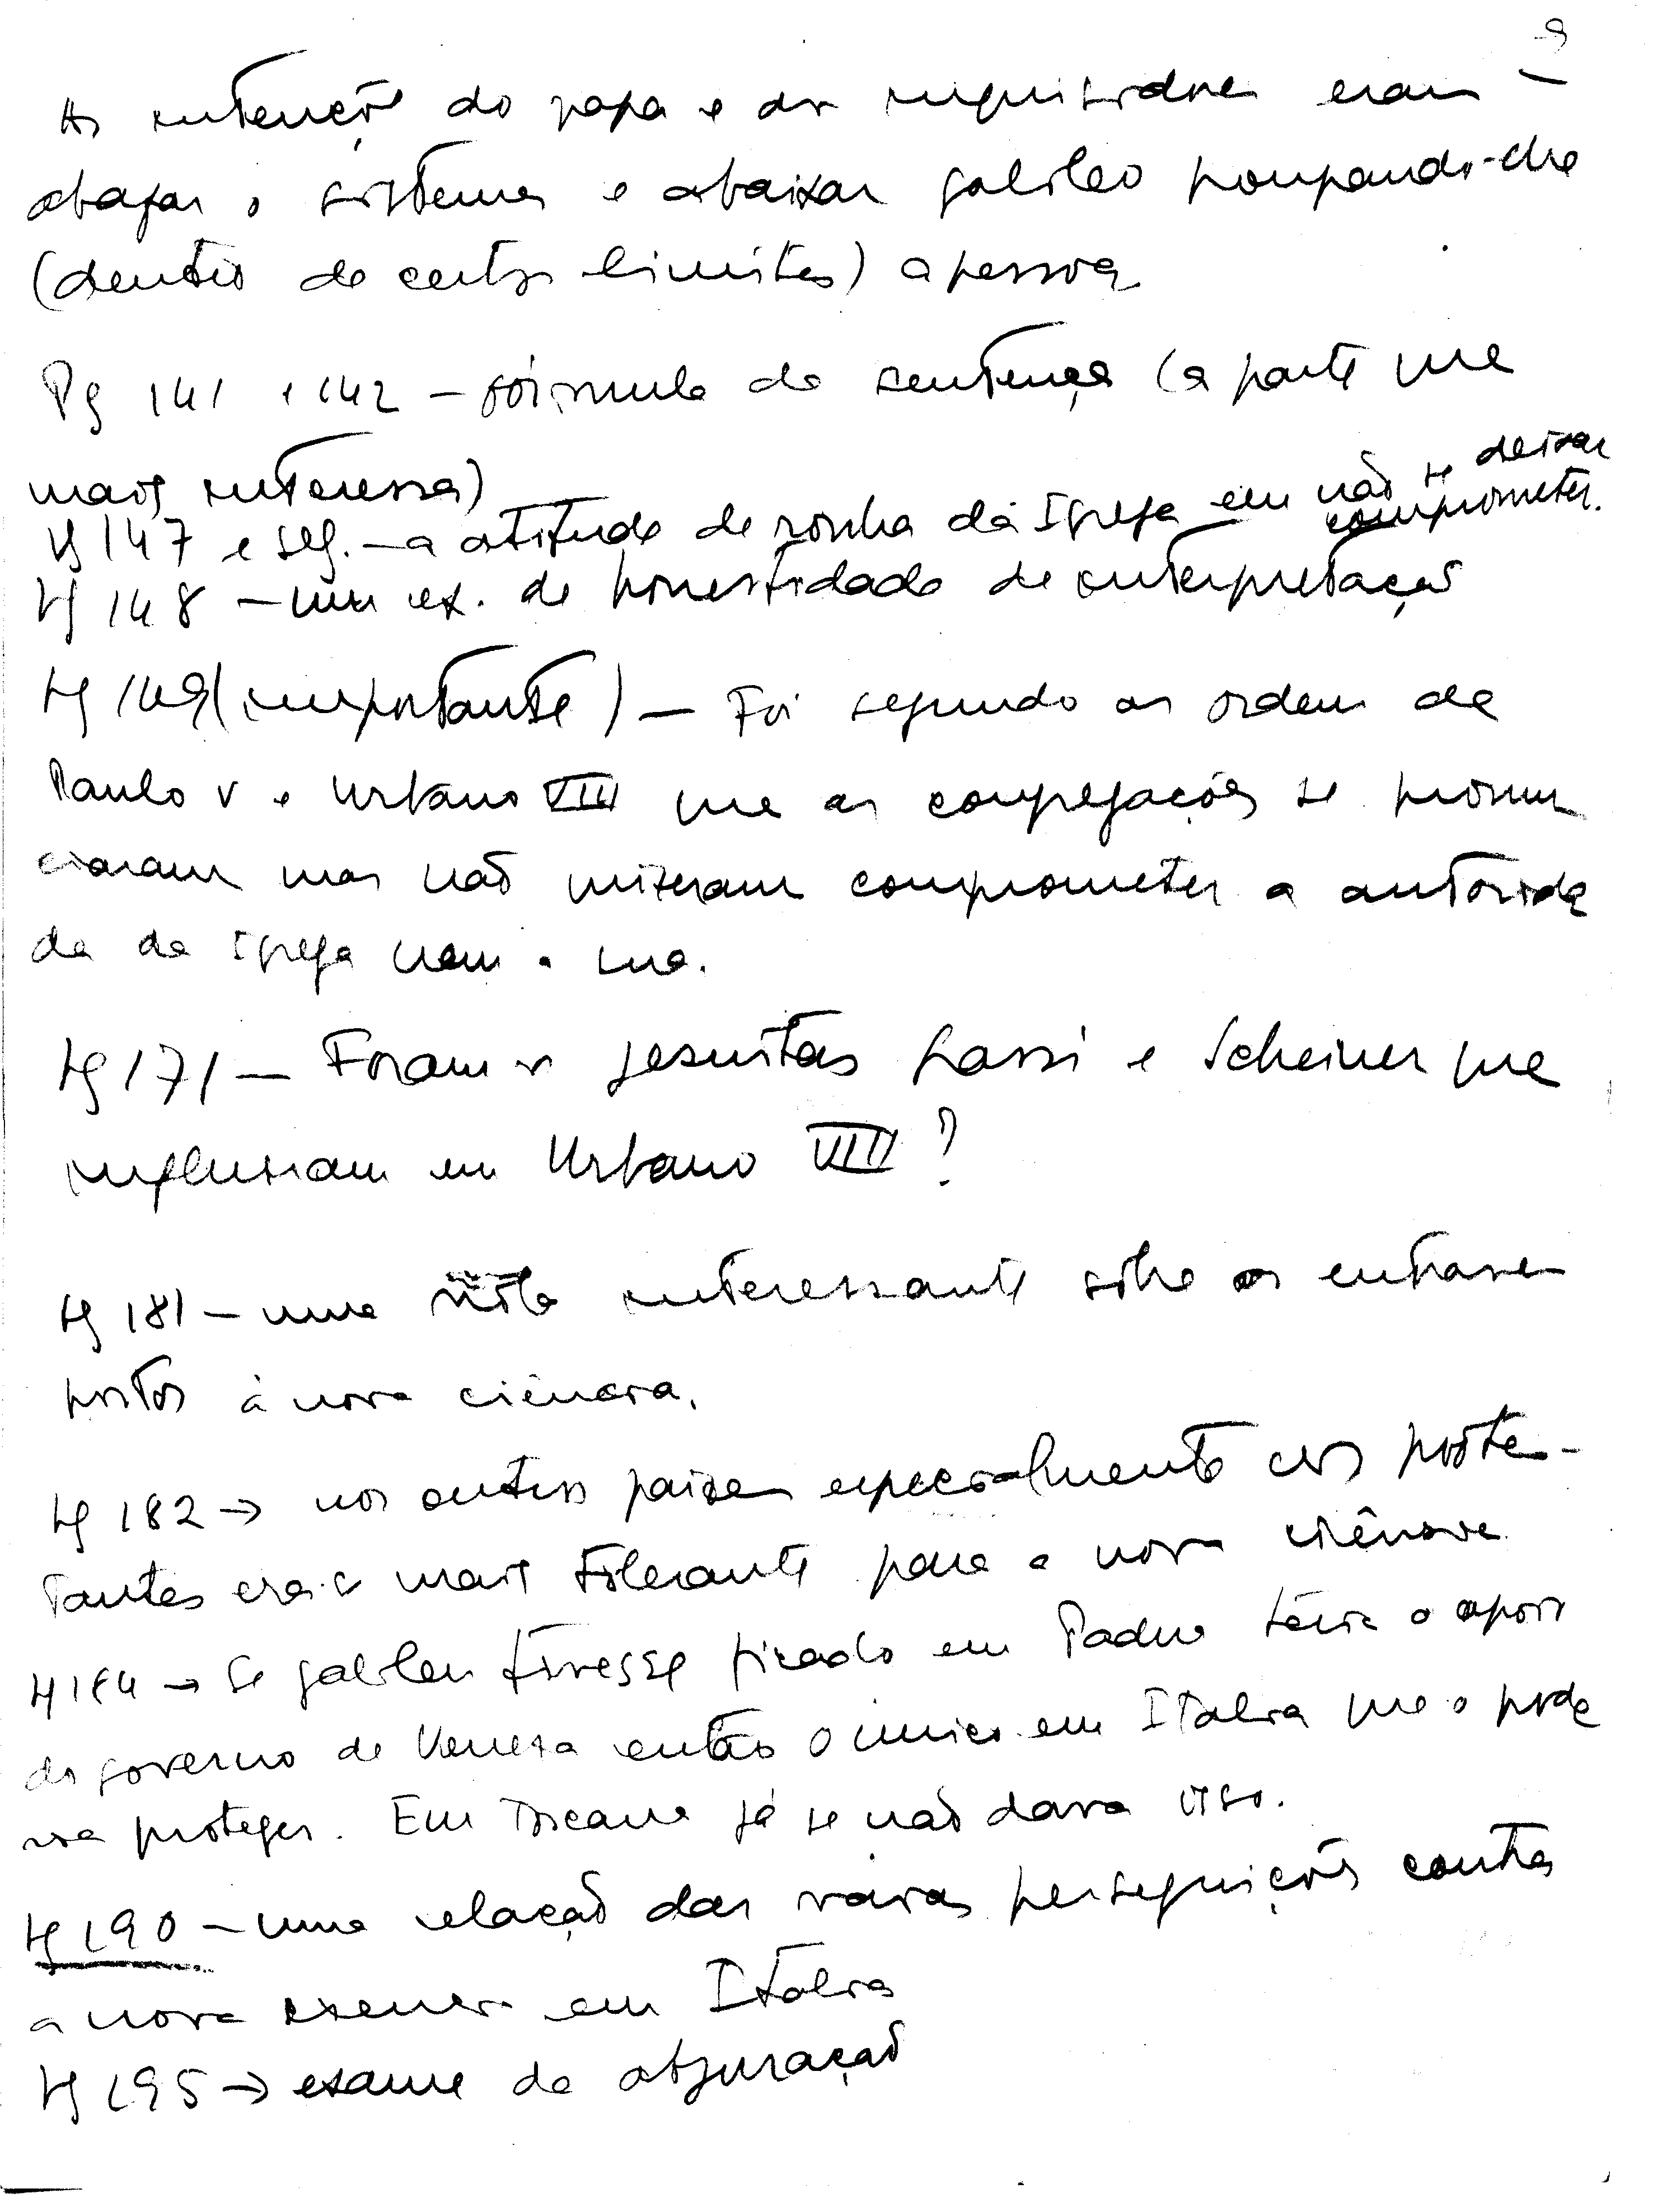 9
As intenções do papa e dos inquisidores eram
abafar o sistema e abaixar Galileo poupando-lhe
(dentro de certos limites) a pessoa
Pg 141 e 142 – fórmula da sentença (a parte que
mais interessa)
Pg 147 e seg. – a atitude de ronha da Igreja em não se deixar
comprometer.
Pg 148 – um ex. de honestidade de interpretação
Pg 149 (importante) – Foi segundo as ordens de
Paulo V e Urbano VIII que as congregações se pronun
ciaram mas não quizeram comprometer a autorida
de da Igreja nem a sua.
Pg 171 – Foram os jesuitas Grassi e Scheiner que
influiram em Urbano VIII?
Pg 181 – uma nota interessante sôbre os entraves
postos à nova ciência.
Pg 182 → nos outros paises especialmente os protes-
tantes era-se mais tolerante para a nova ciência
Pg 184 → Se Galileu tivesse ficado em Padua teria o apoio
do governo de Veneza então o unico em Italia que o pode
ria proteger. Em Toscana já se não dava isso.
Pg 190 – uma relação das varias perseguições contra
a nova ciencia em Italia
Pg 195 → exame da abjuração